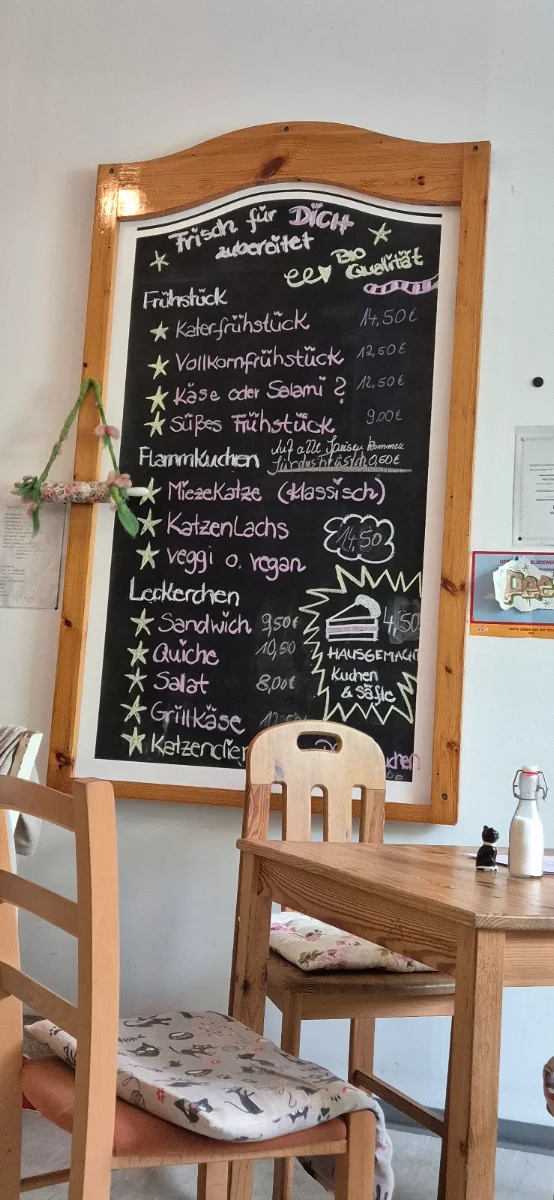 Frisch für DICH
zubereitet
BIO
Qualität
Frühstück
Katerfrühstück 14,50€
Vollkornfrühstück 12,50€
Käse oder Salami ? 12,50€
Süßes Frühstück 9,00€
Flammkuchen Auf alle Speisen kommen
0,60€
Miezekatze (klassisch)
KatzenLachs 14,50
Veggi o. vegan
Leckerchen
Sandwich 9,50€
Quiche 10,50
Salat 8,00€
Grillkäse
4,50
HAUSGEMACHT
Kuchen
& Säfte